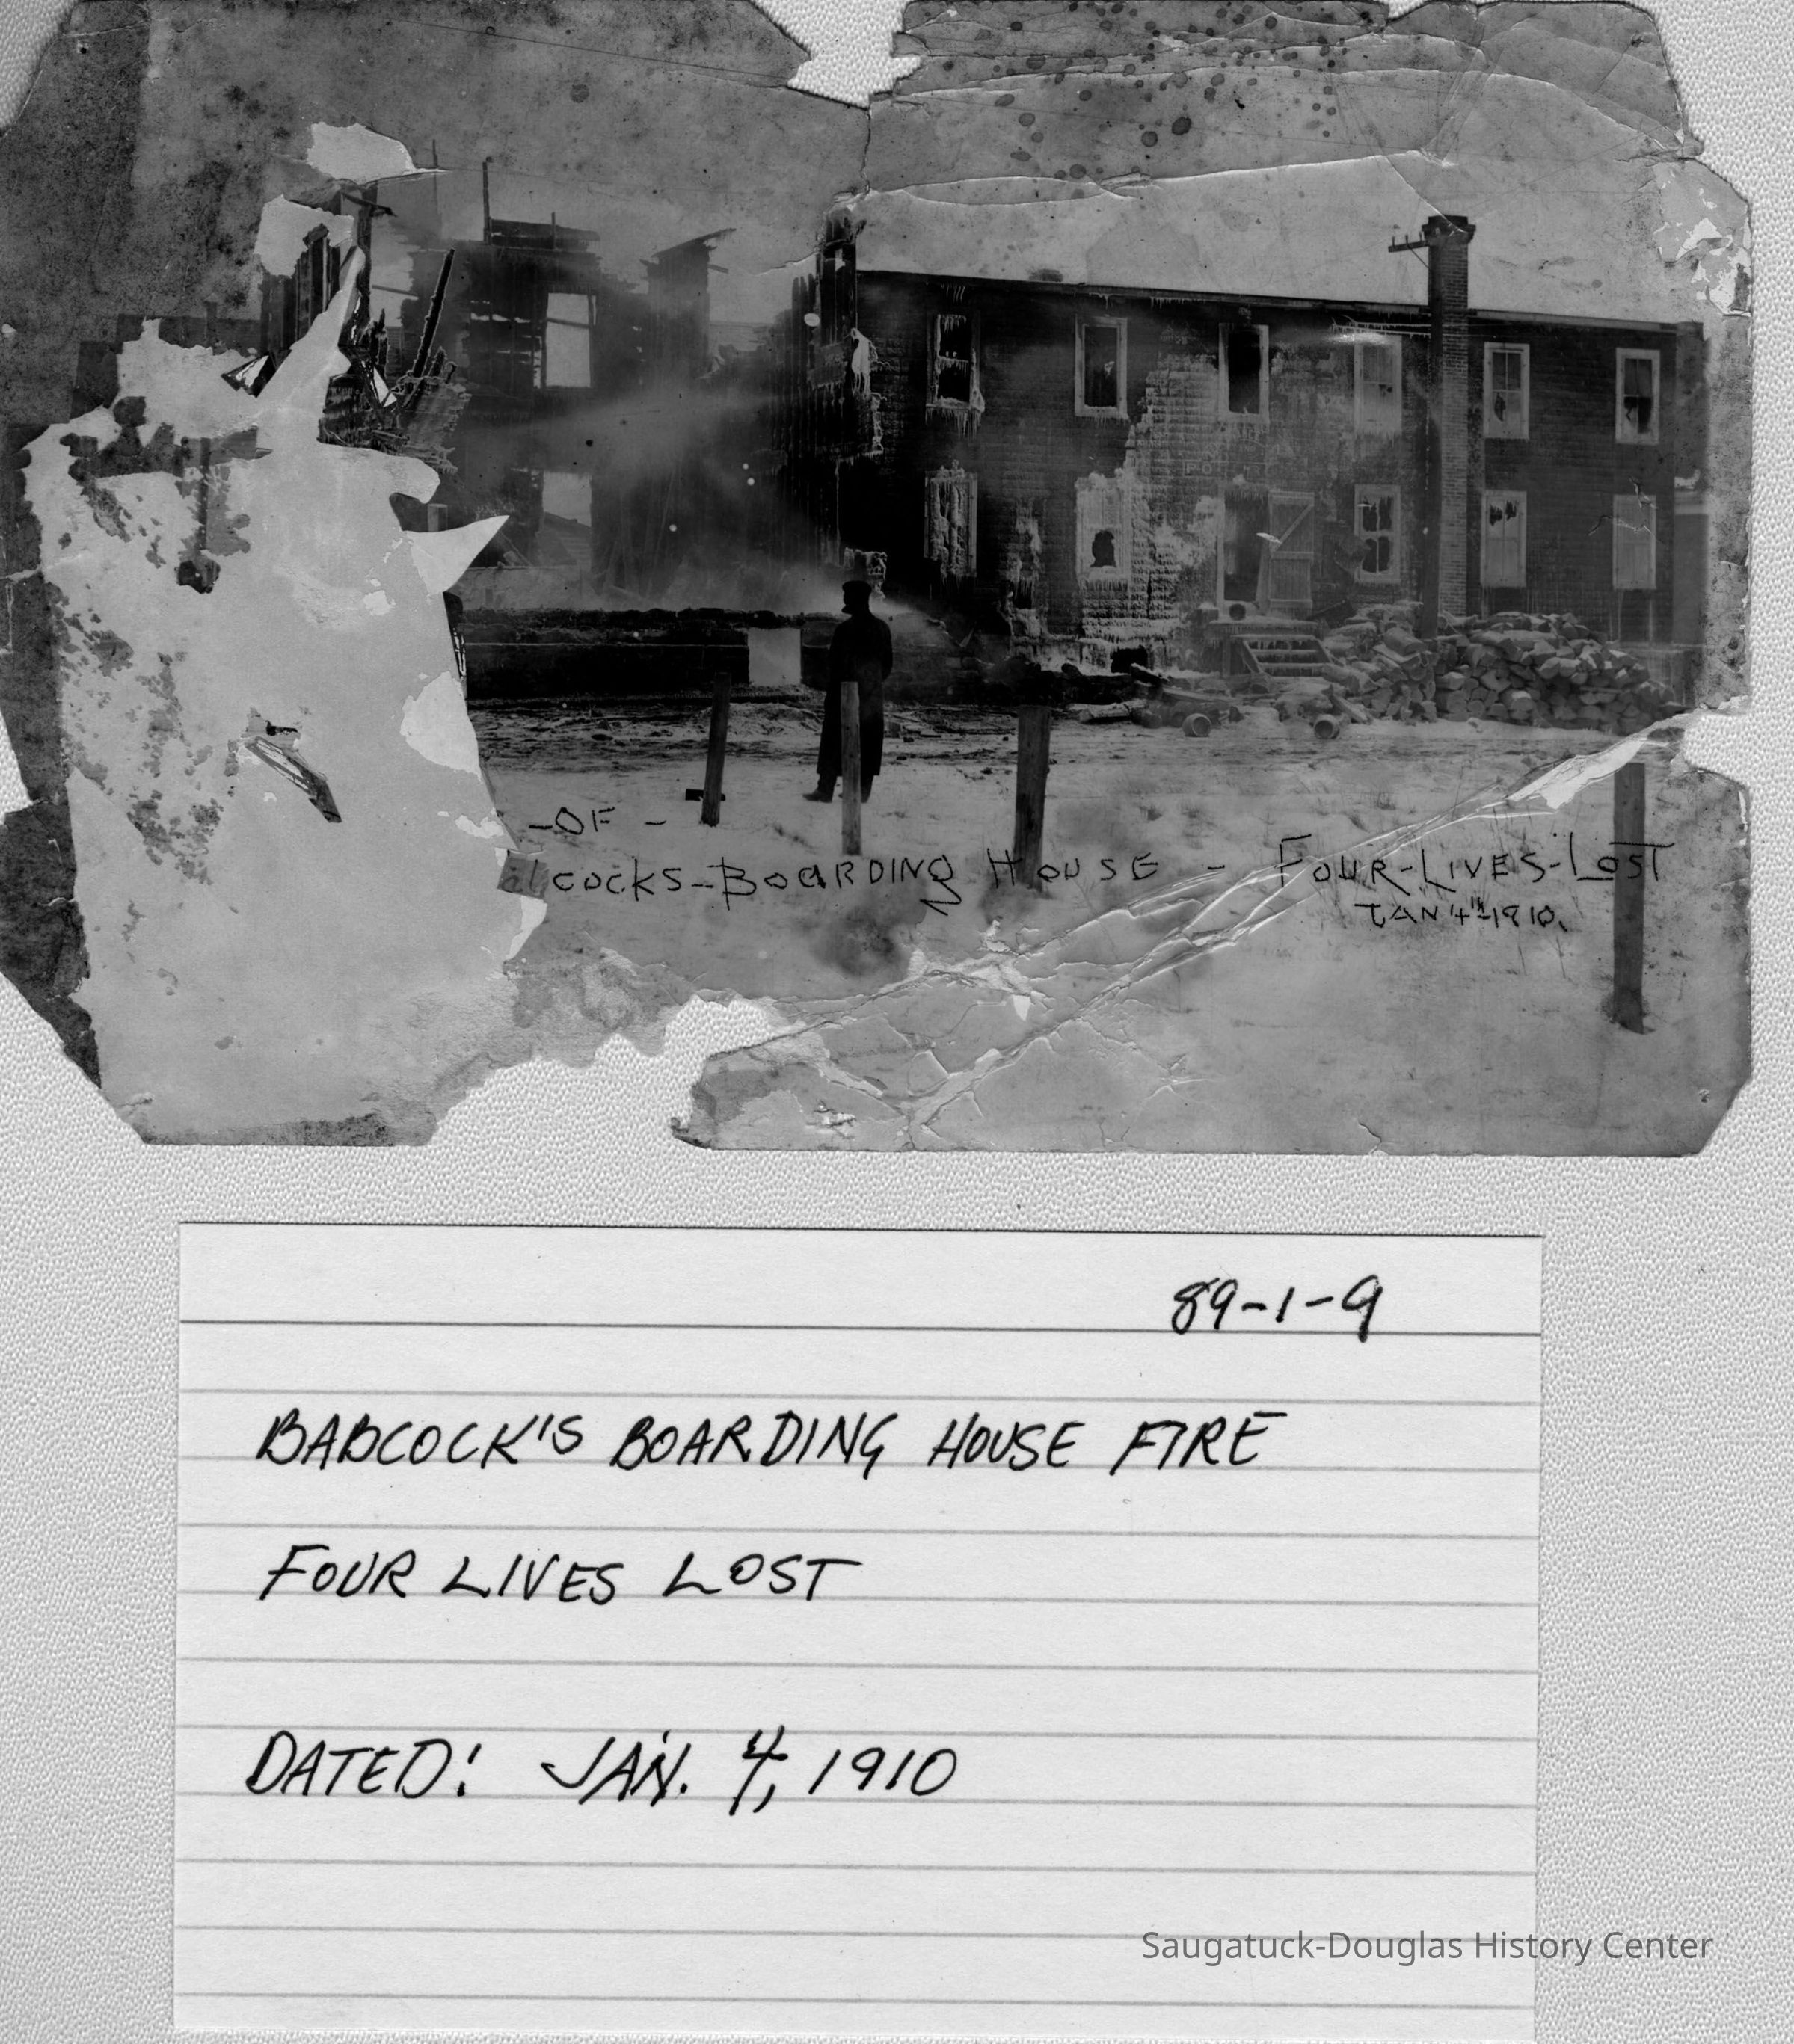 -OF-
lcocks-Boarding House - Four-Lives-Lost
JAN 4th-1910.
89-1-9
BABCOCK'S BOARDING HOUSE FIRE
FOUR LIVES LOST
DATED: JAN. 4, 1910
Saugatuck-Douglas History Center